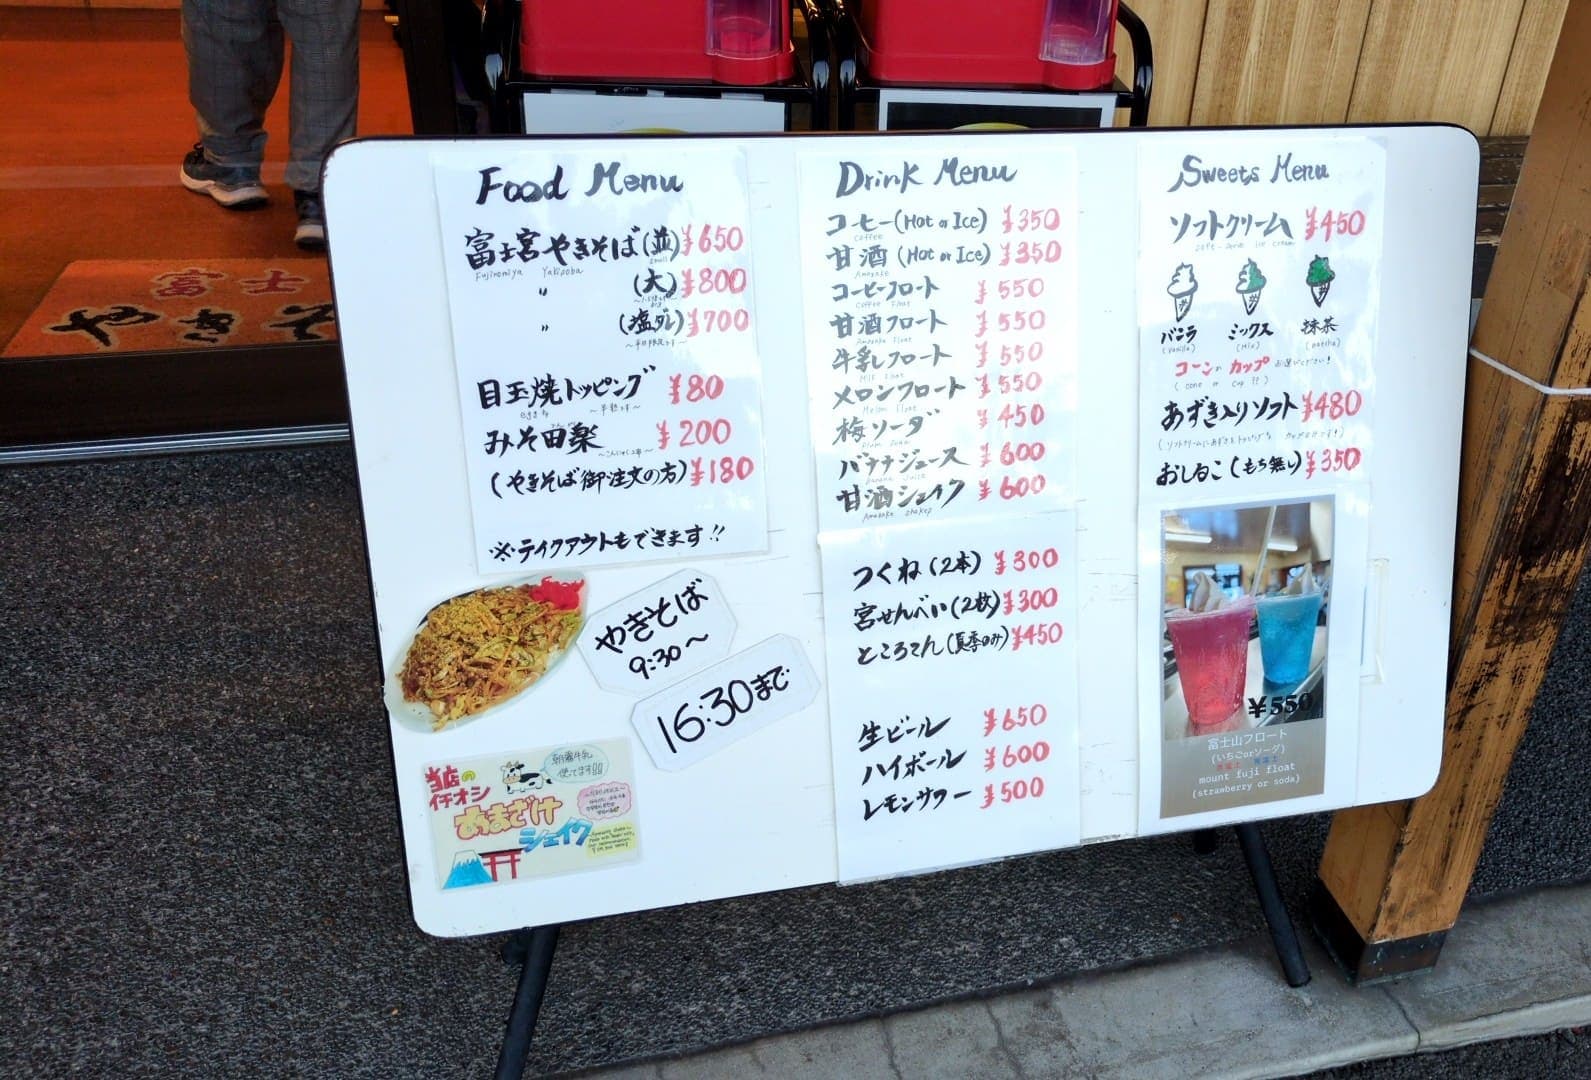 Food Menu
富士宮やきそば(並)¥650
Fujinomiya Yakisoba small
〃 (大)¥800
〃 (塩ダレ)¥700
目玉焼トッピング ¥80
egg
〜半熟です〜
みそ田楽 ¥200
(やきそば御注文の方)¥180
※テイクアウトもできます!!
やきそば
9:30〜
16:30まで
当店の
イチオシ
朝霧牛乳
使ってます!!
あまざけ
シェイク
Drink Menu
コーヒー(Hot or Ice) ¥350
Coffee
甘酒(Hot or Ice) ¥350
Amazake
コーヒーフロート ¥550
Coffee Float
甘酒フロート ¥550
Amazake Float
牛乳フロート ¥550
Milk Float
メロンフロート ¥550
Melon Float
梅ソーダ ¥450
Plum Soda
バナナジュース ¥600
Banana Juice
甘酒シェイク ¥600
Amazake
つくね(2本) ¥300
宮せんべい(2枚)¥300
ところてん(夏季のみ)¥450
生ビール ¥650
ハイボール ¥600
レモンサワー ¥500
Sweets Menu
ソフトクリーム ¥450
soft-serve ice cream
バニラ ミックス 抹茶
(vanilla) (mix) (matcha)
コーン カップ お選びください!
(cone or cup??)
あずき入りソフト¥480
おしるこ(もち無し)¥350
¥550
富士山フロート
(いちごorソーダ)
mount fuji float
(strawberry or soda)
富士
やきそ